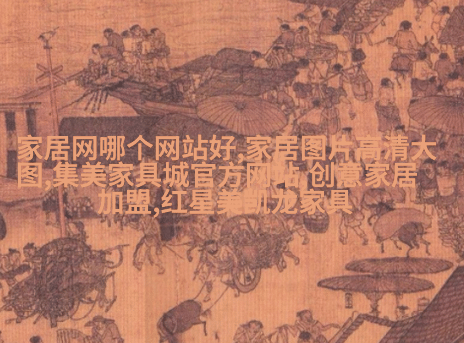 家居网哪个网站好,家居图片高清大
图,集美家具城官方网站,创意家居
加盟,红星美凯龙家具